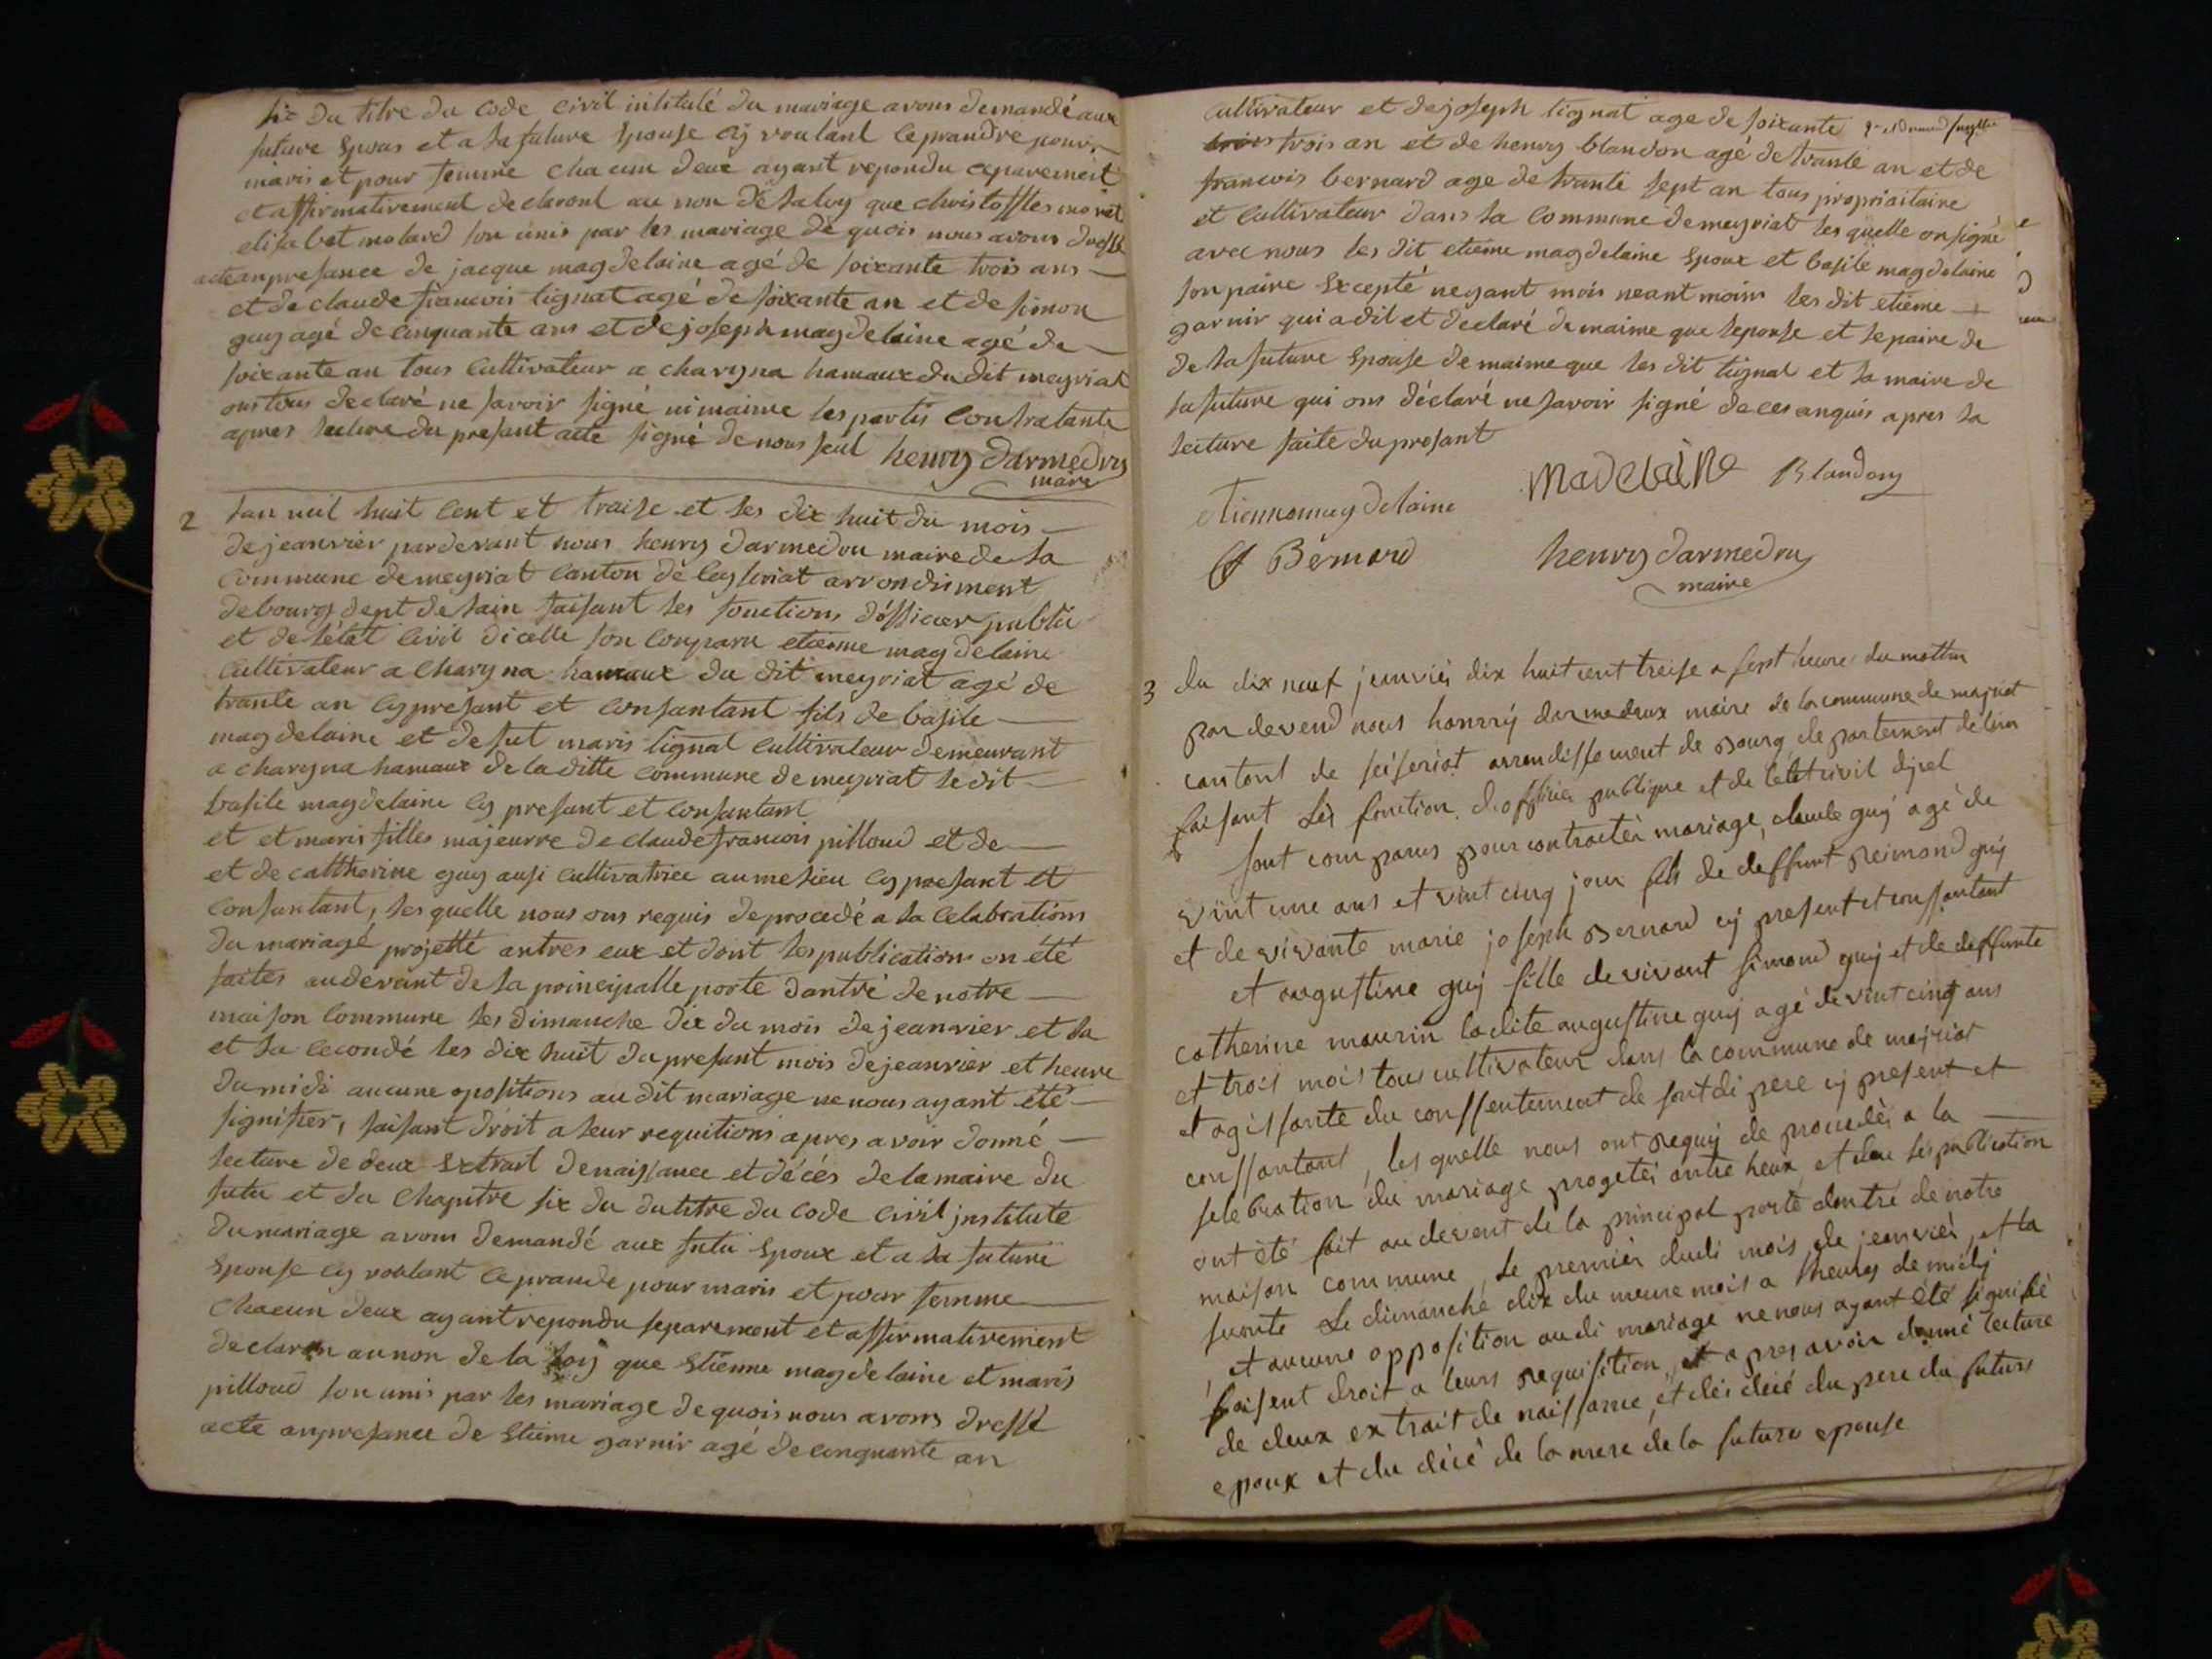 six du titre du code civil intitulé du mariage avons demandé aux
future Epous et a la future Epouse cy voulant ce prandre pour
maris et pour femme chacun deux ayant repondu ceparement
et affirmativement declaront au non de la loy que christoffles morat
elisabet molard son unis par les mariage de quois nous avons dressé
acte anpresance de jacque magdelaine agé de soixante trois ans
et de claude francois lignat agé de soixante an et de simon
guy agé de cinquante ans et de joseph magdelaine agé de
soixante an tous cultivateur a charyna hamaux du dit meyriat
ons tous declaré ne savoir signé ni maime les partis contratante
apres lecture du presant acte signé de nous seul henry darmedru
maire
2 lan mil huit cent et traize et les dix huit du mois
de jeanvier pardevant nous henry darmedru maire de la
commune de meyriat canton de ceyseriat arrondisment
debourg dept de lain faisant les fonctions dofficier public
et de létat civil dicelle son conparu etienne magdelaine
cultivateur a charyna hamaux du dit meyriat agé de
trante an cy presant et consantant fils de basile
magdelaine et defut maris lignat cultivateur demeurant
a charyna hamaux de la ditte commune de meyriat le dit
basile magdelaine cy presant et consantant
et et maris filles majeurre de claude francois pilloud et de
et de cattherine guy ausi cultivatrice aumelieu cy presant et
consantant, lesquelle nous ons requis deprocedé a la celabrations
du mariagé projetté antres eux et dont les publications on été
faites audevant de la poincipalle porte dantré de notre
maison commune les dimanche dix du mois de jeanvier et la
et la cecondé les dix huit du presant mois de jeanvier et heure
du midi aucune opositions au dit mariage ne nous ayant été
signifier, faisant droit a leur requitions apres avoir donné
lecture de deux Extrait denaissance et décés de la maire du
futu et du chapitre six du dutitre du code civil institulé
du mariage avons demandé aux futu Epoux et a la future
Epouse cy voulant ce prande pour maris et pour femme
chacun deux ayant repondu separement et affirmativement
declaron au non de la loy que Etienne magdelaine et maris
pilloud son unis par les mariage de quois nous avons dressé
acte anpresance de Etienne garnir agé de cinquante an
cultivateur et de joseph lignat age de soixante
trois an et de henry blandon agé de trante an et de
francois bernard age de trante sept an tous propriaitaire
et cultivateur dans la commune de meyriat les quelle on signé
avec nous les dit etienne magdelaine Epoux et basile magdelaine
son paire Excepté neyant mois neant moins les dit etienne
garnir qui a dit et declaré de maime que lepouse et le paire de
de la future Epouse de maime que les dit lignat et la maire de
la future qui ons déclaré ne savoir signé de ces anquis apres la
lecture faite du presant
Madelaine Blandon
etienne magdelaine
Bernard henry darmedru
maire
3 du dix neuf jeanvier dix huit cent treise a sept heure du mattin
par devend nous hanrry darmedrux maire de la commune de majriat
cantont de seiseriat arrondissement de Bourg departement de l'ain
faisant les fonction d'officier publique et de l'etat civil dicel
sont comparus pour contracter mariage, claude guy agé de
vint une ans et vint cinq jour fils de deffunt Reimond guy
et de vivante marie joseph Bernard cy present et conssantant
et augustine guy fille de vivant simond guy et de deffunte
catherine maurin ladite augustine guy agé de vint cinq ans
et trois mois tous cultivateur dans la commune de majriat
et agissante du conssentement de sont di pere cy present et
conssantant, les quelle nous ont Requis de proceder a la
selebration du mariage progeté antre heux et dont les publication
ont été fait audevent de la principal porte dantré de notre
maison commune, le premier dudi mois de jeanvier, et la
suvonte le dimanche dix du meme mois a l'heure de midy
et aucune opposition audi mariage ne nous ayant été signifié
faisent droit a leurs Requisition, et apres avoir donné lecture
de deux extrait de naissance, et des décé du pere du futurs
epoux et du décé de la mere de la future epouse